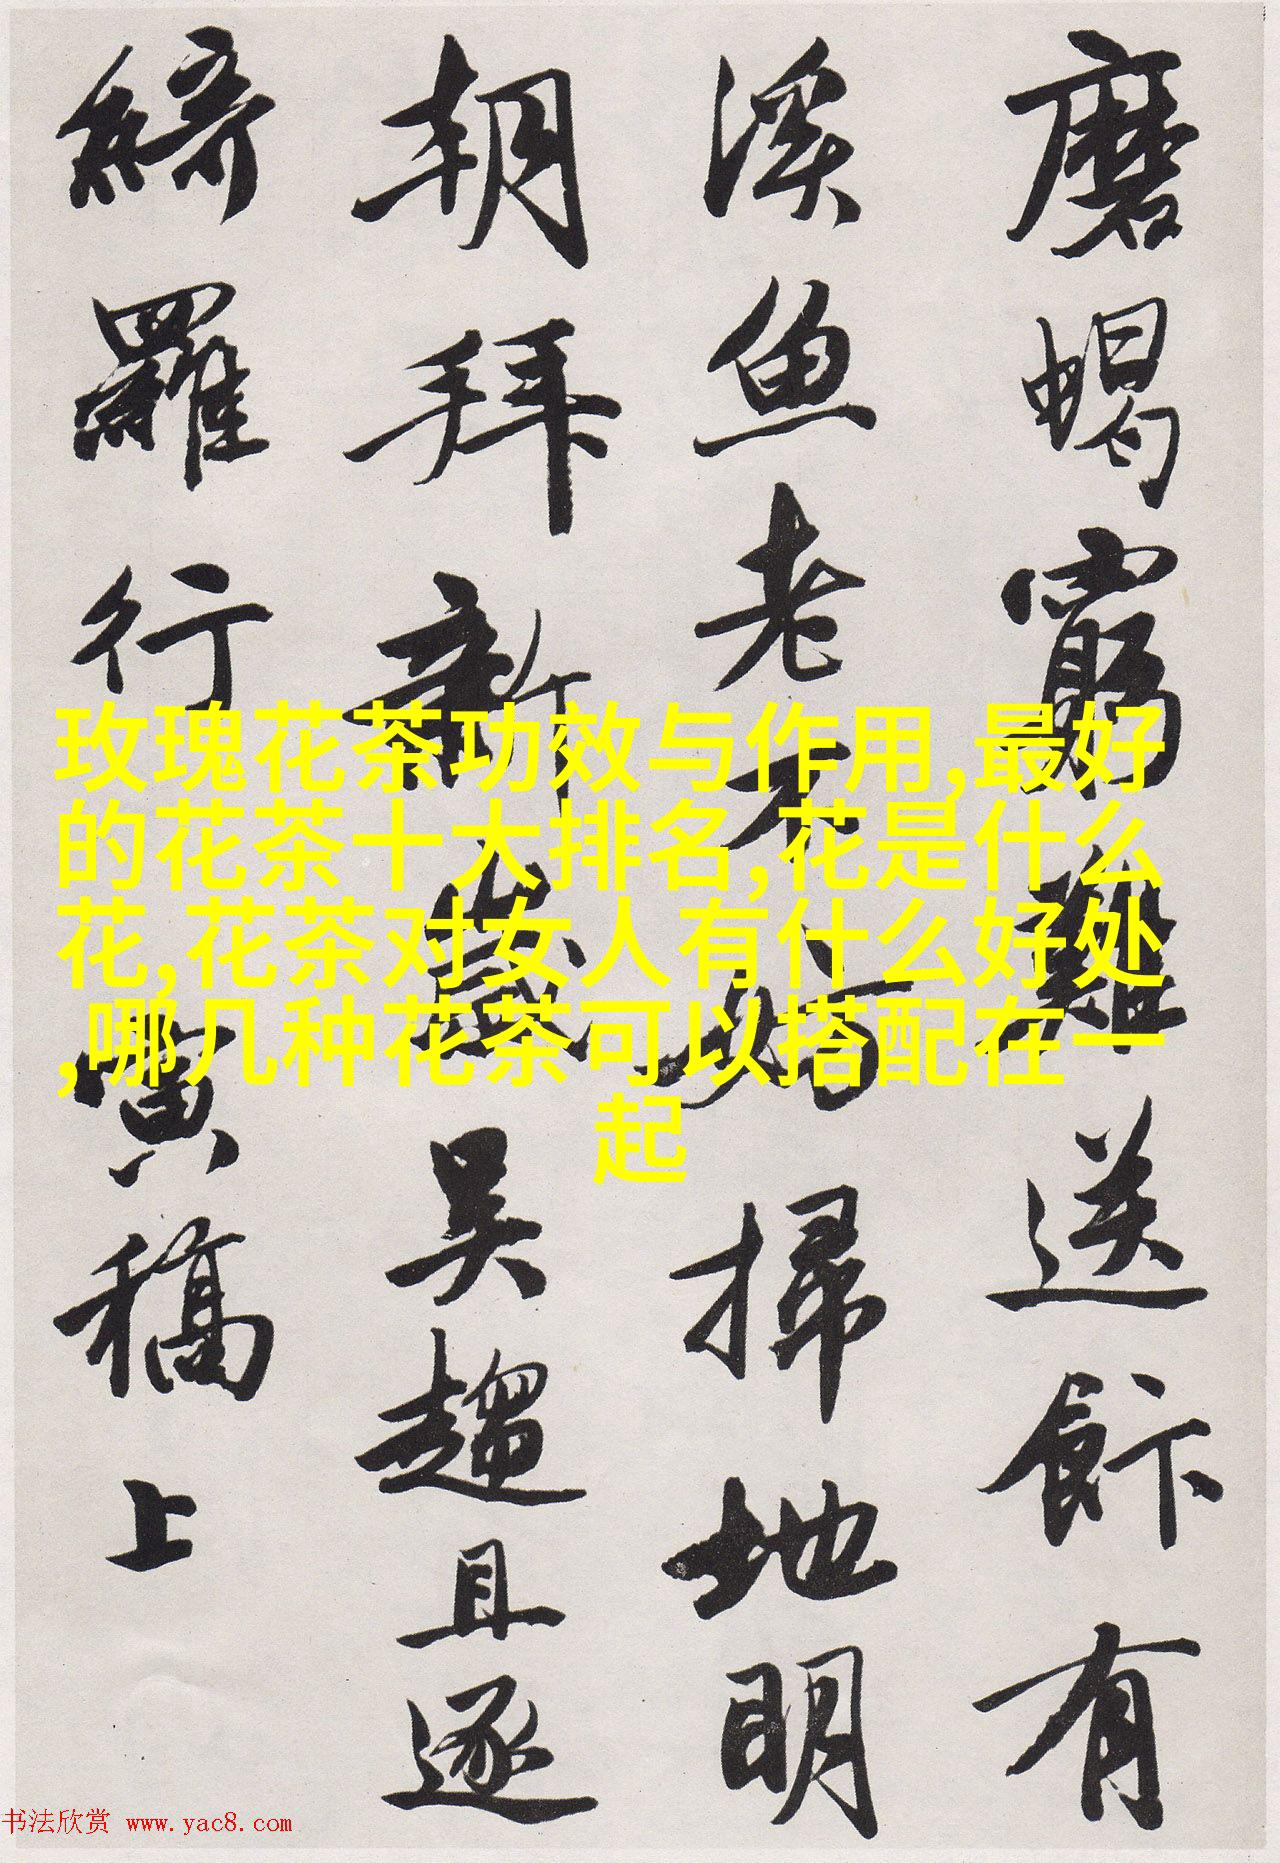 磨蝎窮難送飰有
溪魚老不妨掃地明
朝拜新歲吳趨且逐
綺羅行 寅稿上
玫瑰花茶功效与作用,最好
的花茶十大排名,花是什么
花,花茶对女人有什么好处
,哪几种花茶可以搭配在一
起
书法欣赏 www.yac8.com